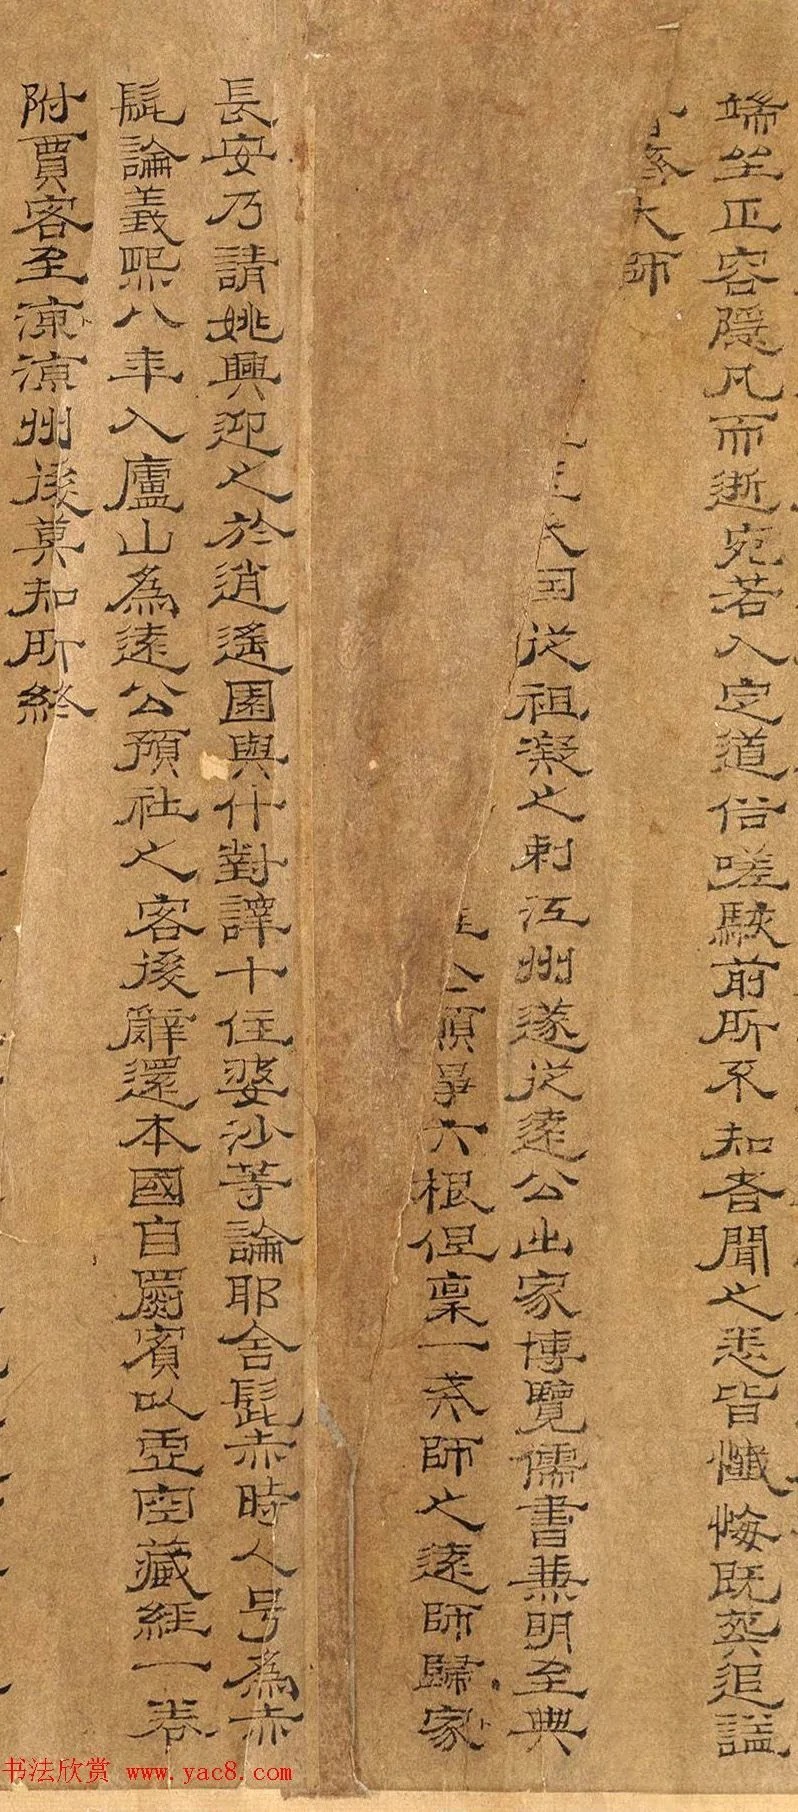 端坐正容隱几而逝宛若入定道俗嗟駭前所不知者聞之悉皆懺悔既葬追謚
大師
国從祖凝之刺江州遂從遠公出家博覽儒書兼明至典
六根但稟一炁師之遠師歸家
長安乃請姚興迎之於逍遙園與什對譯十住婆沙等論耶舍髭赤時人号為赤
髭論義熙八年入廬山為遠公預社之客後辭還本國自罽賓以虛空藏經一卷
附賈客至涼涼州後莫知所終
书法欣赏 www.yac8.com